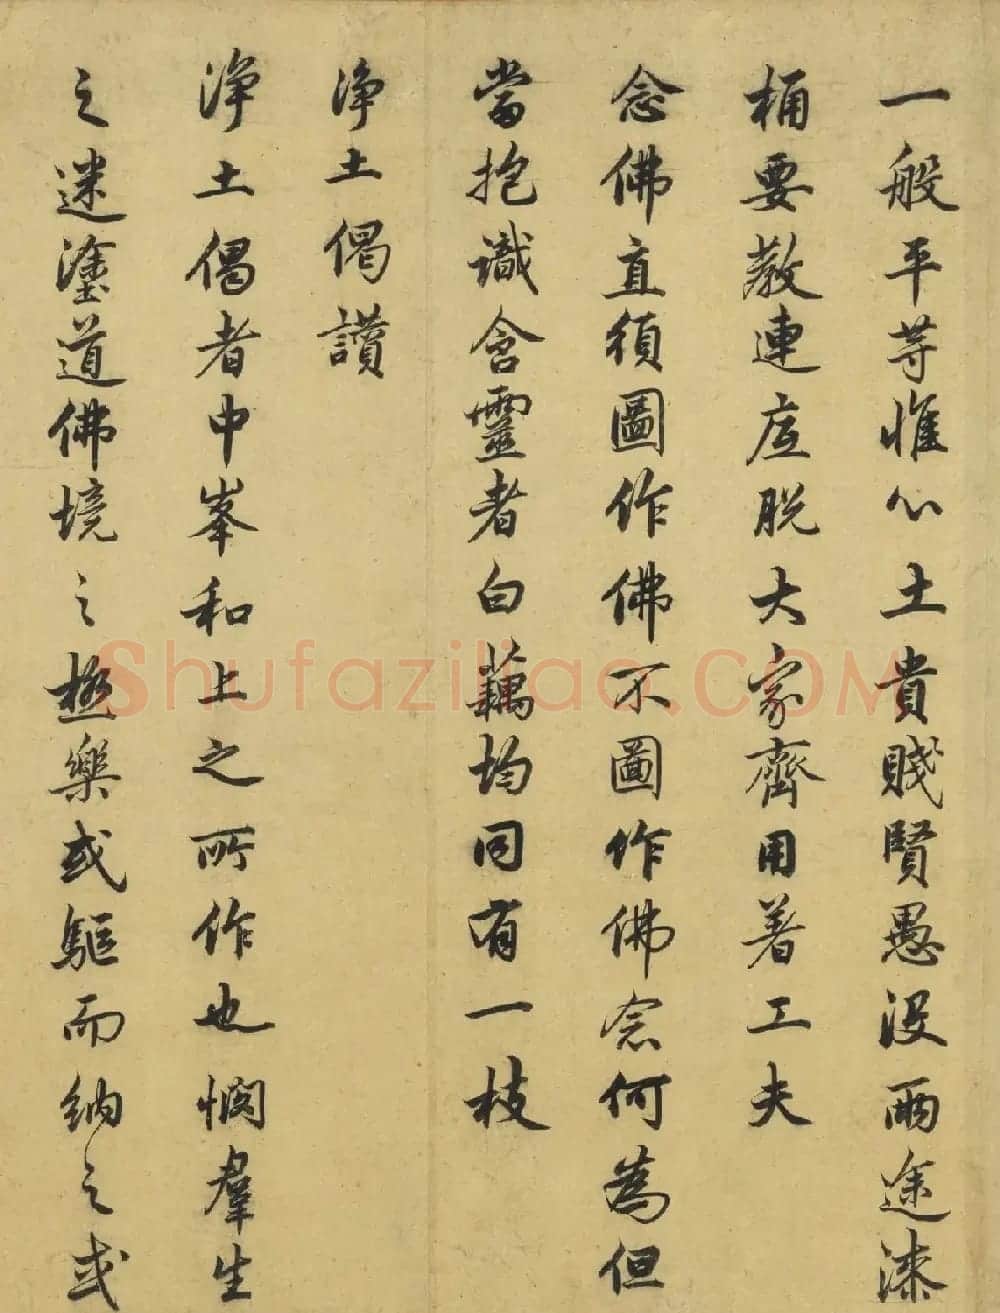 一般平等惟心土貴賤賢愚没兩途漆
桶要教連底脱大家齊用著工夫
念佛直須圖作佛不圖作佛念何為但
當抱識含靈者白藕均同有一枝
淨土偈讚
淨土偈者中峯和上之所作也憫羣生
之迷塗道佛境之極樂或驅而納之或
Shufaziliao.COM